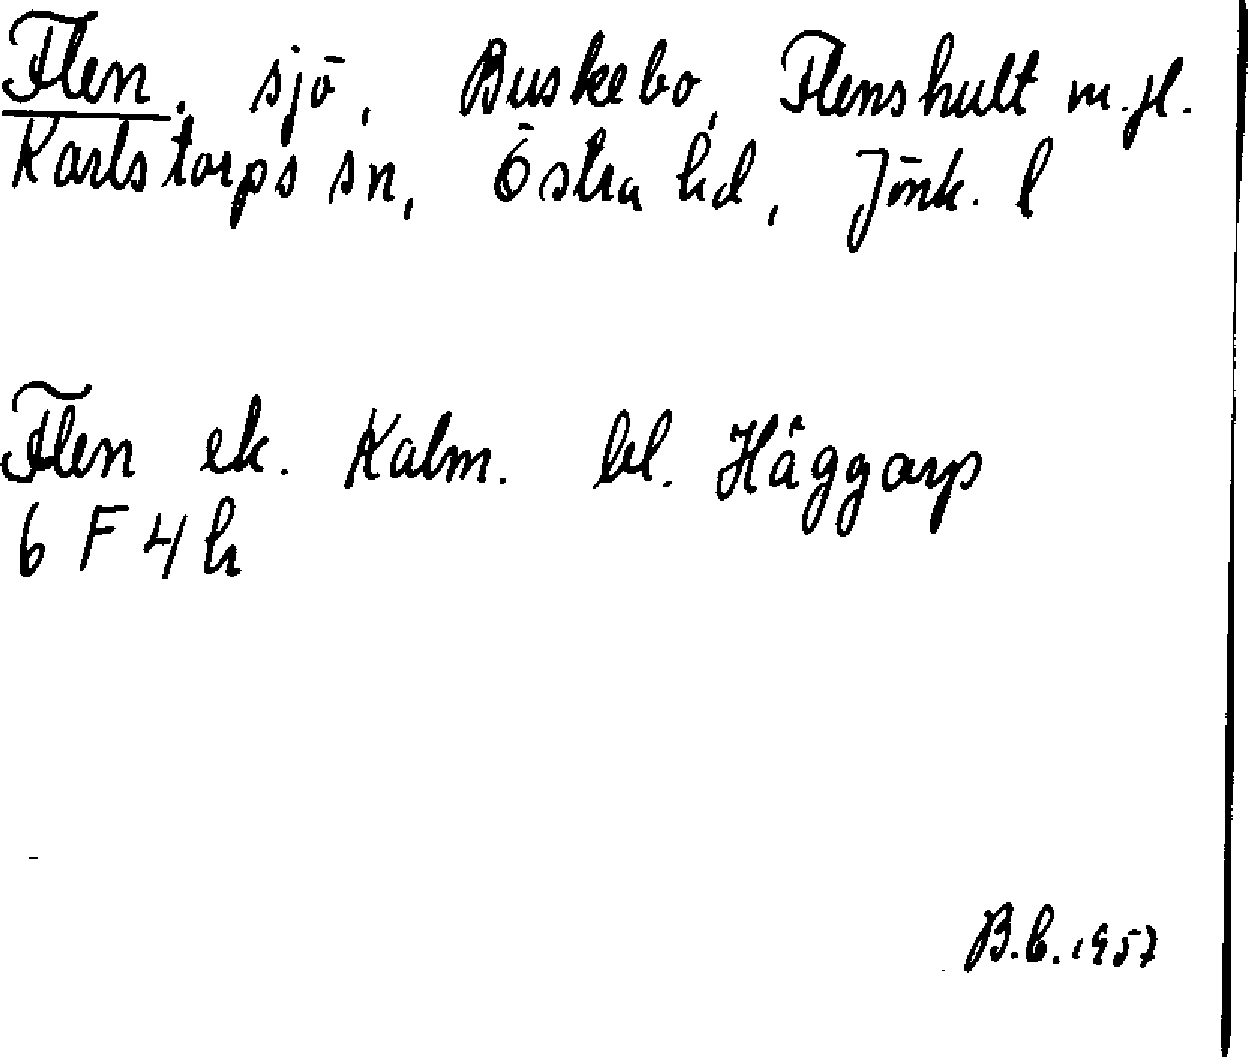 Flen, sjö, Buskebo, Flenshult m.fl.
Karlstorps sn, Östra hd, Jönk. l
Flen ek. Kalm. bl. Häggarp
6 F 4 h
B.b. 1957